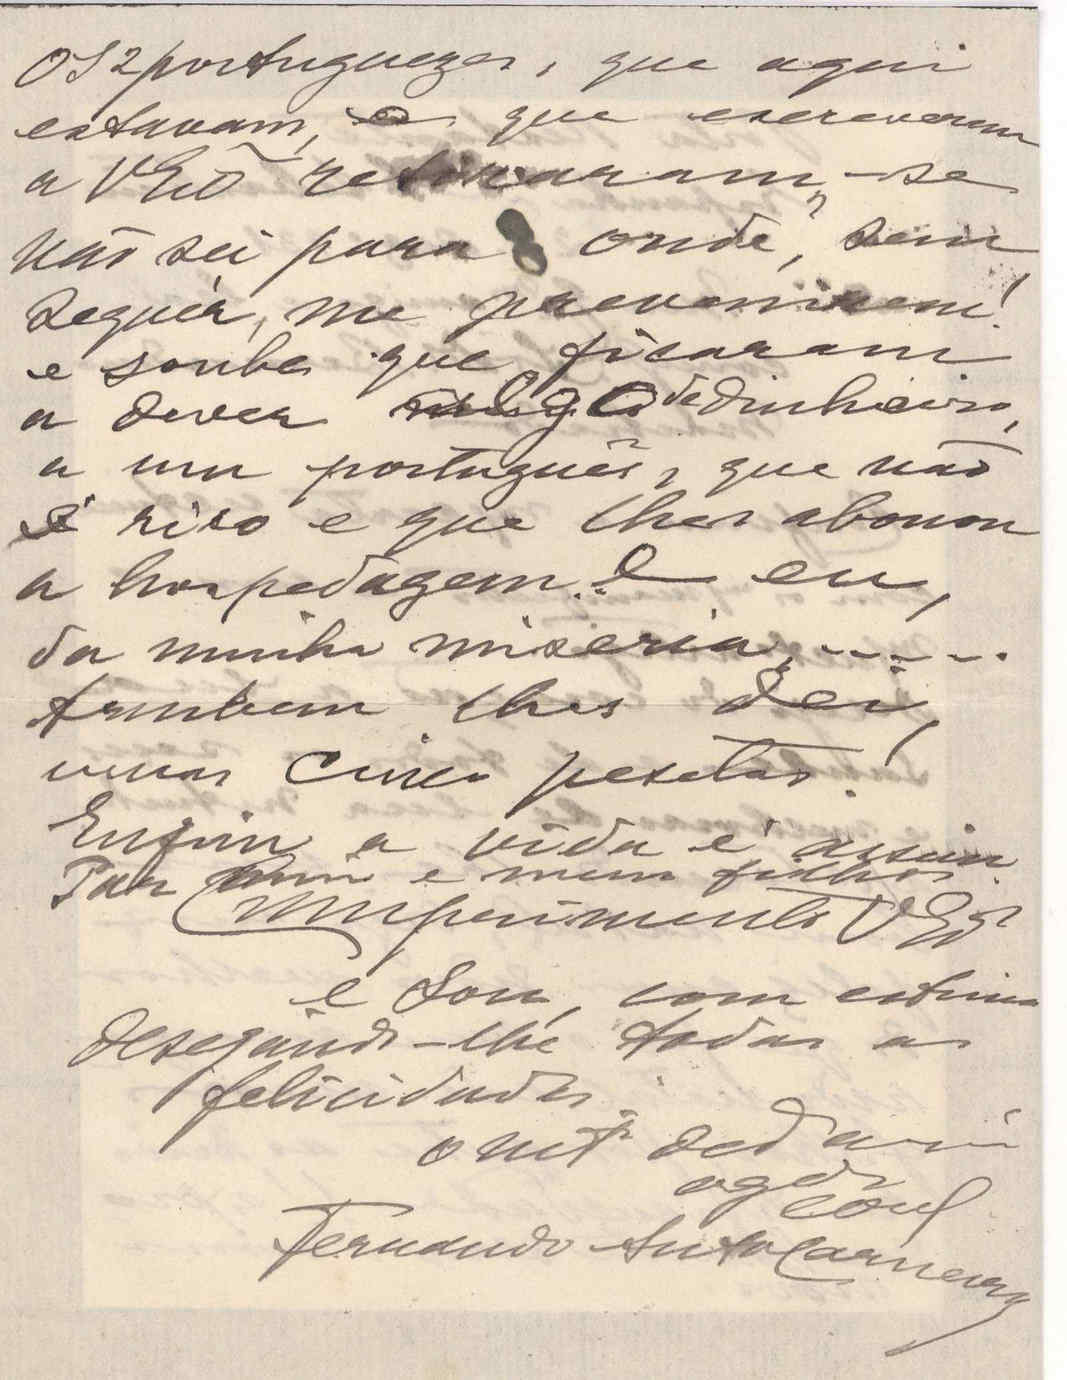 OS 2 portuguezes, que aqui
estavam, e que escreveram
a VExª retiraram-se
não sei para onde, sem
sequér, me prevenirem!
e soube que ficaram
a dever algo de dinheiro,
a um português, que não
é rico e que lhes abonou
a hospedagem. E eu,
da minha miseria, .....
tambem lhes dei,
umas cinco pesetas!
Enfim a vida é assim
Por mim e meus filhos
Cumprimento VExª
e Sou, com estima
desejando-lhe todas as
felicidades.
o mtº ded
Fernando Carneiro